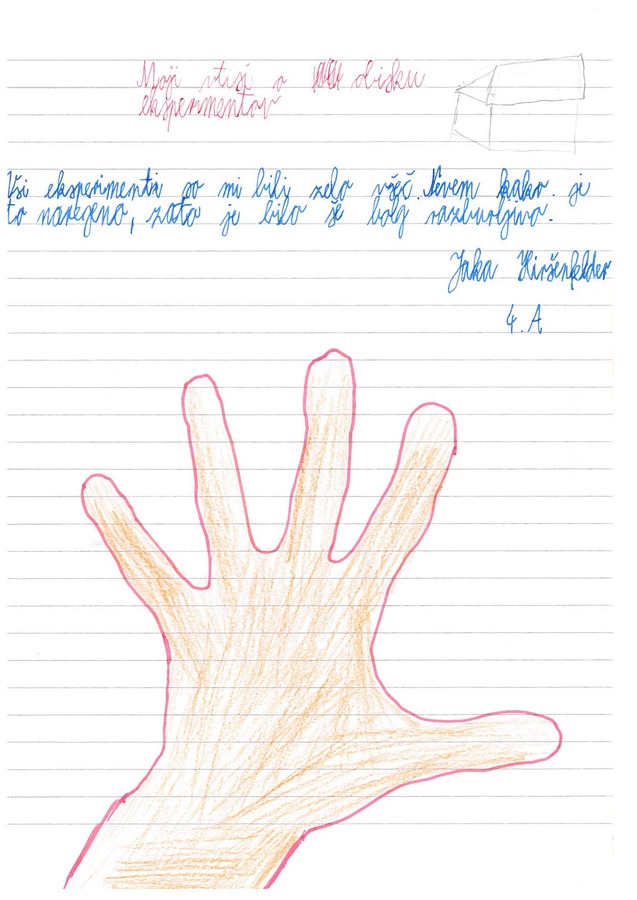 Moji vtisi o obisku
eksperimentov
Vsi eksperimenti so mi bili zelo všeč. Nevem kako je
to narejeno, zato je bilo še bolj razburljivo.
Jaka Hiršenfelder
4. A